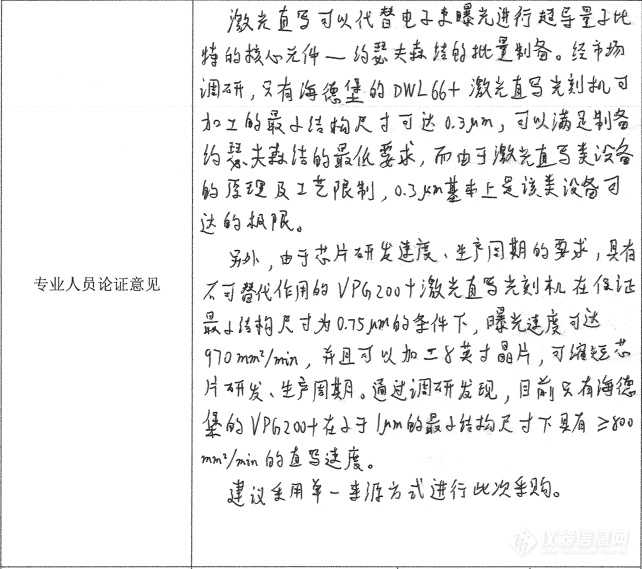 激光直写可以代替电子束曝光进行超导量子比
特的核心元件—约瑟夫森结的批量制备。经市场
调研，只有海德堡的DWL66+激光直写光刻机可
加工的最小结构尺寸可达0.3μm，可以满足制备
约瑟夫森结的最低要求，而由于激光直写类设备
的原理及工艺限制，0.3μm基本上是该类设备可
达的极限。
另外，由于芯片研发速度、生产周期的要求，具有
不可替代作用的VPG200+激光直写光刻机在保证
最小结构尺寸为0.75μm的条件下，曝光速度可达
970mm²/min，并且可以加工8英寸晶片，可缩短芯
片研发、生产周期。通过调研发现，目前只有海德
堡的VPG200+在小于1μm的最小结构尺寸下具有≥800
mm²/min的直写速度。
建议采用单一来源方式进行此次采购。
专业人员论证意见
仪器信息网
www.instrument.com.cn